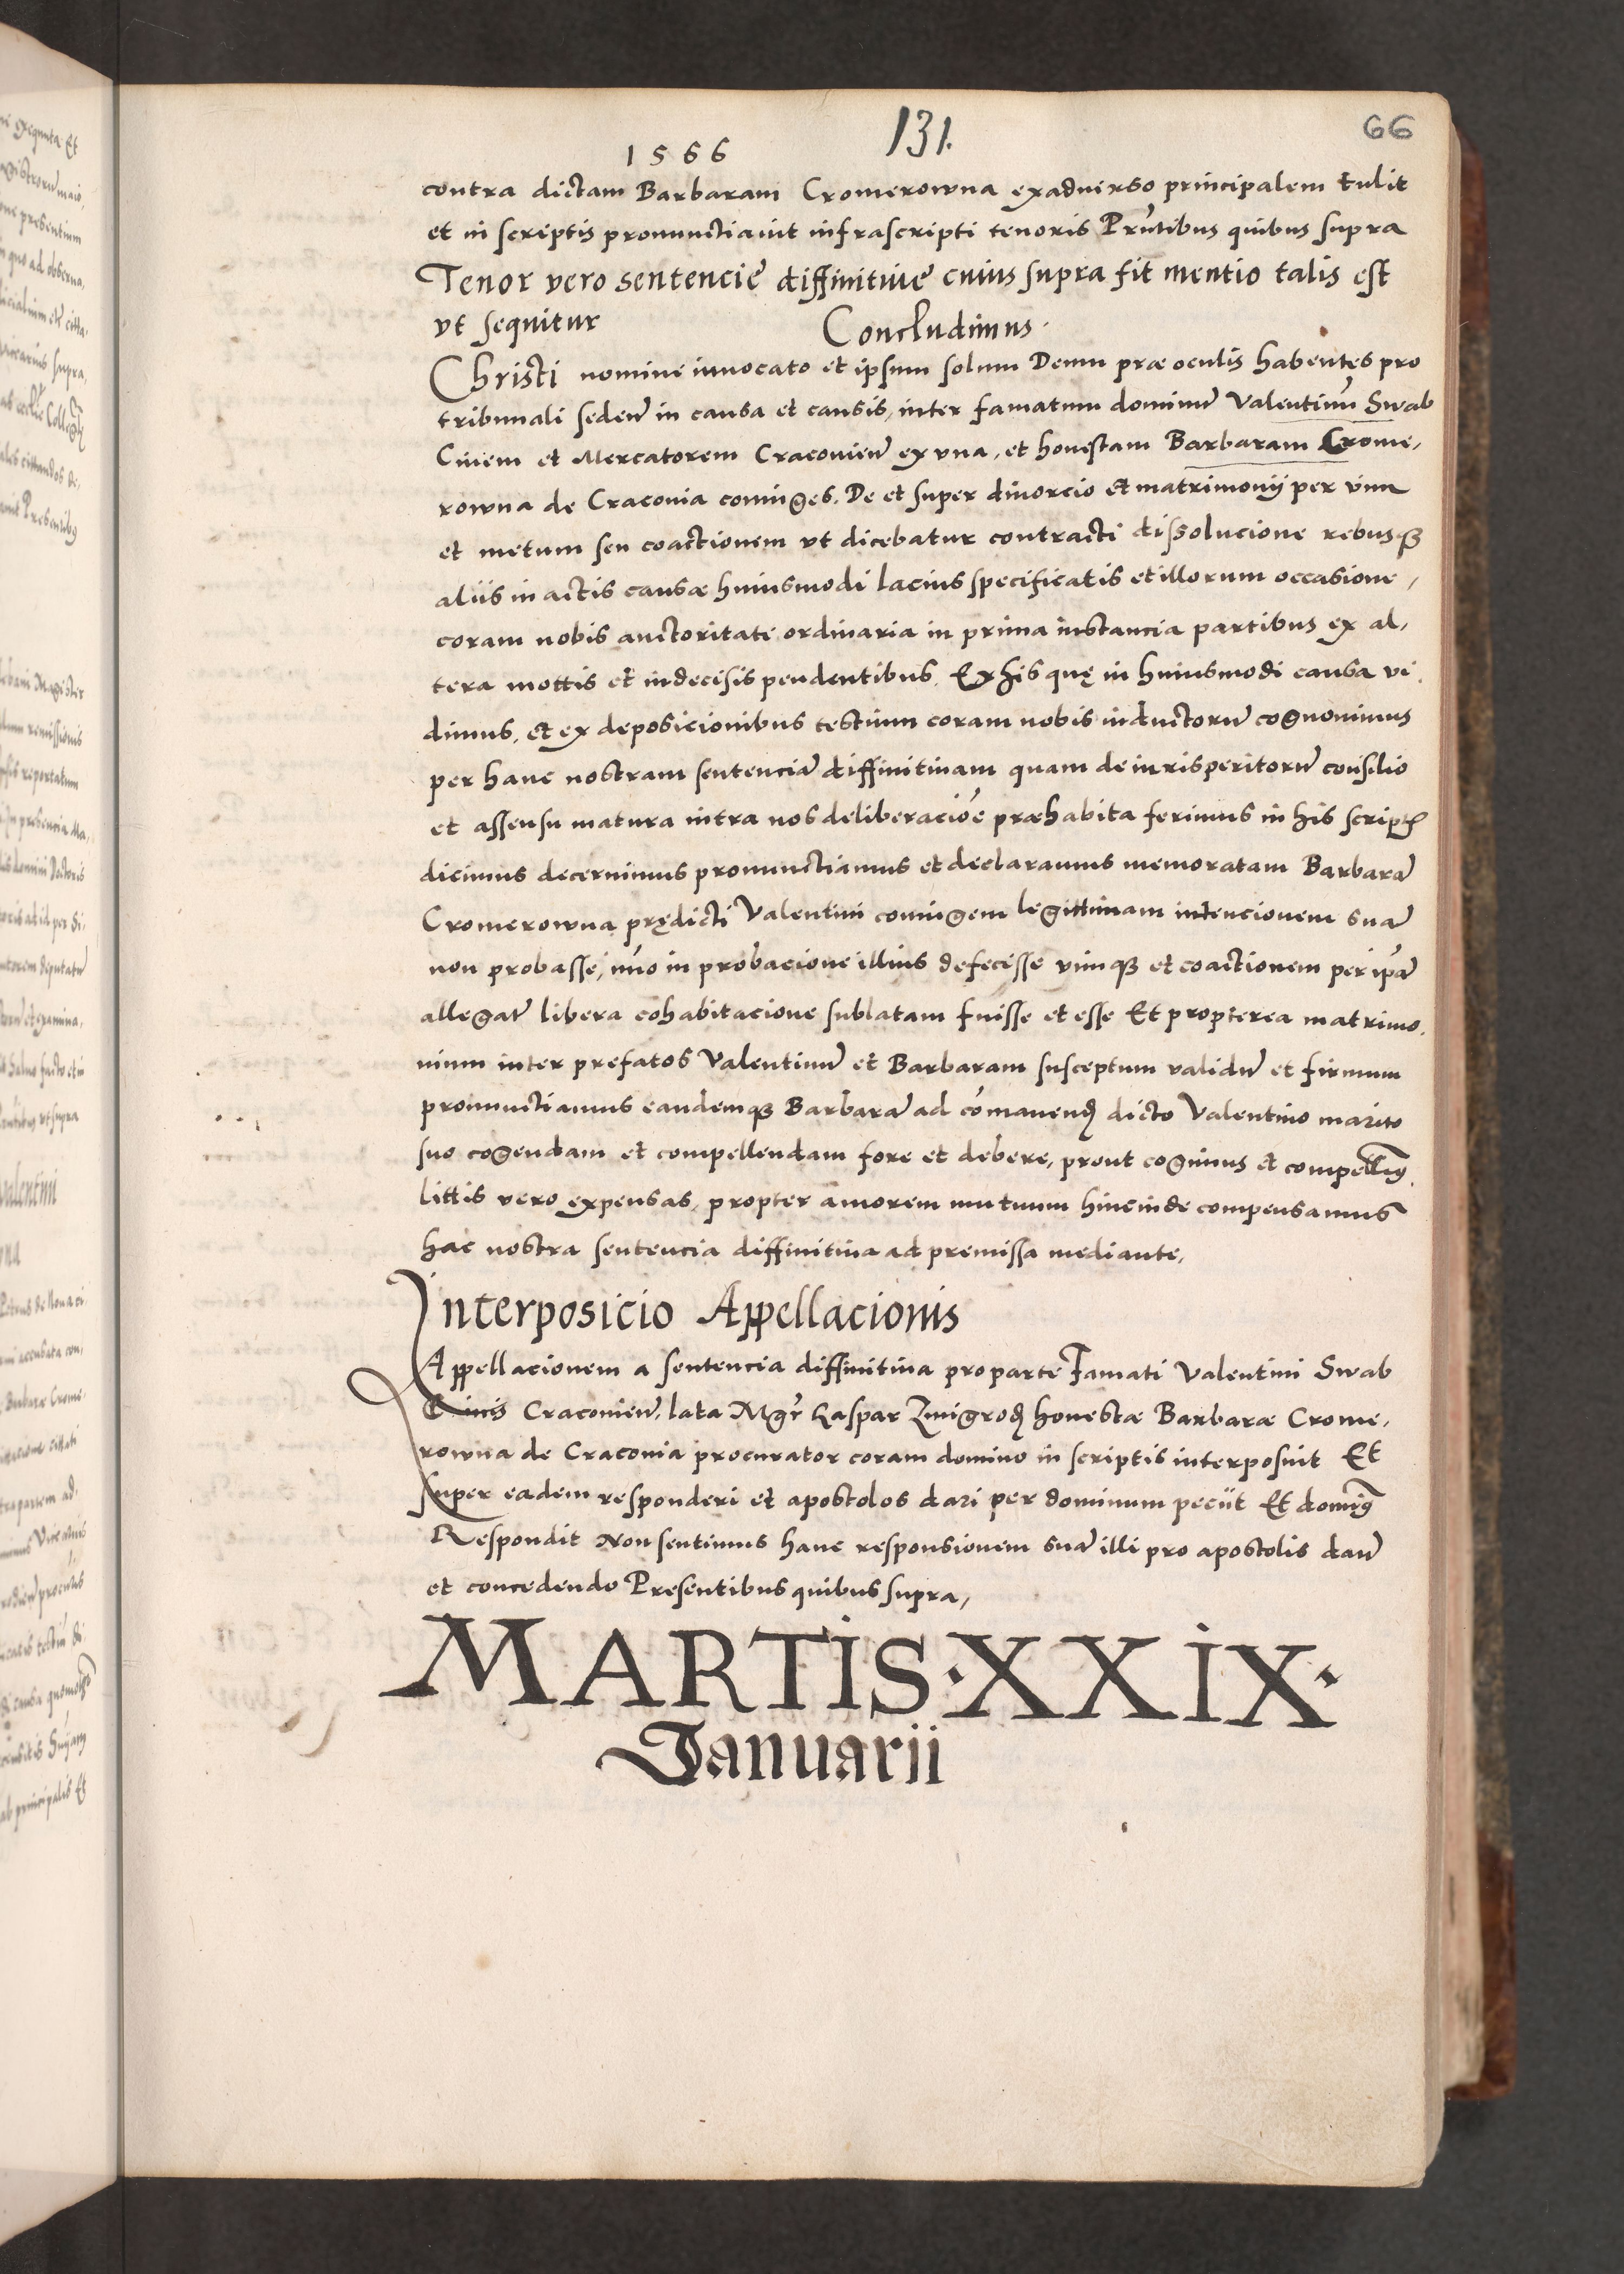 131.
66
1566
contra dictam Barbaram Cromerowna exaduerso principalem tulit
et in scriptis pronunctiauit infrascripti tenoris Prntibus quibus supra
Tenor vero sentencie diffinitiue cuius supra fit mentio talis est
vt sequitur Concludimus.
Christi nomine inuocato et ipsum solum Deum præ oculis habentes pro
tribunali seden in causa et causis, inter famatum dominu Valentinu Swab
Ciuem et Mercatorem Cracouien ex vna, et honestam Barbaram Crome,
rowna de Cracouia coniuges. De et super diuorcio et matrimonij per vim
et metum seu coactionem vt dicebatur contracti dissolucione rebusqȝ
aliis in actis causæ huiusmodi lacius specificatis et illorum occasione,
coram nobis auctoritate ordinaria in prima instancia partibus ex al,
tera mottis et indecisis pendentibus. Ex his quę in huiusmodi causa vi,
dimus, et ex deposicionibus testium coram nobis inductoru cognouimus
per hanc nostram sentencia diffinitiuam quam de iurisperitoru consilio
et assensu matura intra nos deliberacioe præhabita ferimus in his script
dicimus decernimus pronunctiamus et declaramus memoratam Barbara
Cromerowna prędicti Valentini coniugem legittimam intencionem sua
non probasse, imo in probacione illius defecisse vimqȝ et coactionem per ipa
allegat libera cohabitacione sublatam fuisse et esse Et propterea matrimo,
nium inter prefatos Valentinu et Barbaram susceptum validu et firmum
pronunctiamus eandemqȝ Barbara ad comanend dicto Valentino marito
suo cogendam et compellendam fore et debere, prout cogimus et compellimq
littis vero expensas, propter amorem mutuum hincinde compensamus
hac nostra sentencia diffinitiua ad premissa mediante,
Interposicio Appellacionis
Appellacionem a sentencia diffinitiua pro parte Famati Valentini Swab
Ciuis Cracouien, lata Mgr Caspar Zmigrod honestæ Barbaræ Crome,
rowna de Cracouia procurator coram domino in scriptis interposuit Et
super eadem responderi et apostolos dari per dominum peciit Et domiq
Respondit Non sentimus hanc responsionem sua illi pro apostolis dan
et concedendo Presentibus quibus supra,
MARTIS·XXIX·
Januarii